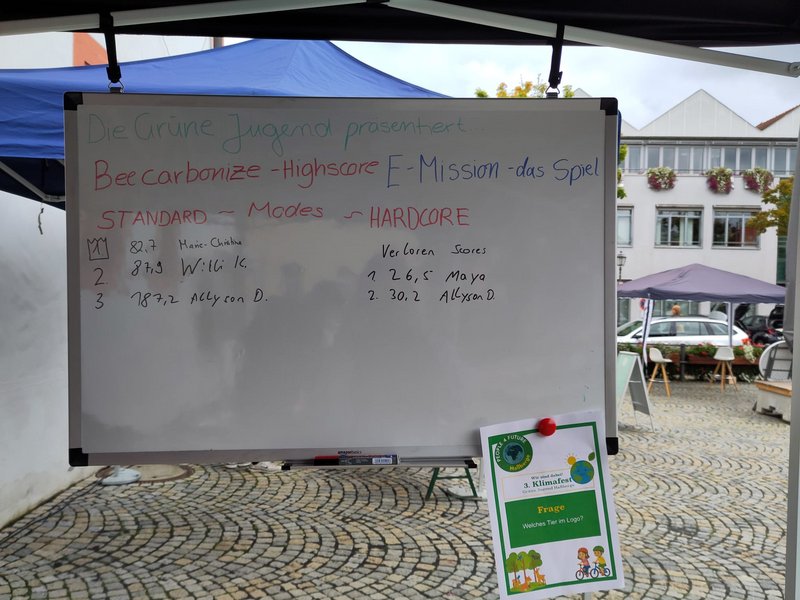 Die Grüne Jugend präsentiert...
Beecarbonize - Highscore E-Mission - das Spiel
STANDARD ~ Modes ~ HARDCORE
82,7 Marie-Christine
2. 87,9 Willi K.
3 187,2 Allyson D.
Verloren Scores
1. 26,5 Maya
2. 30,2 Allyson D.
amazonbasics
PEOPLE 4 FUTURE
Haßberge
Wir sind dabei!
3. Klimafest
Grüne Jugend Haßberge
Frage
Welches Tier im Logo?